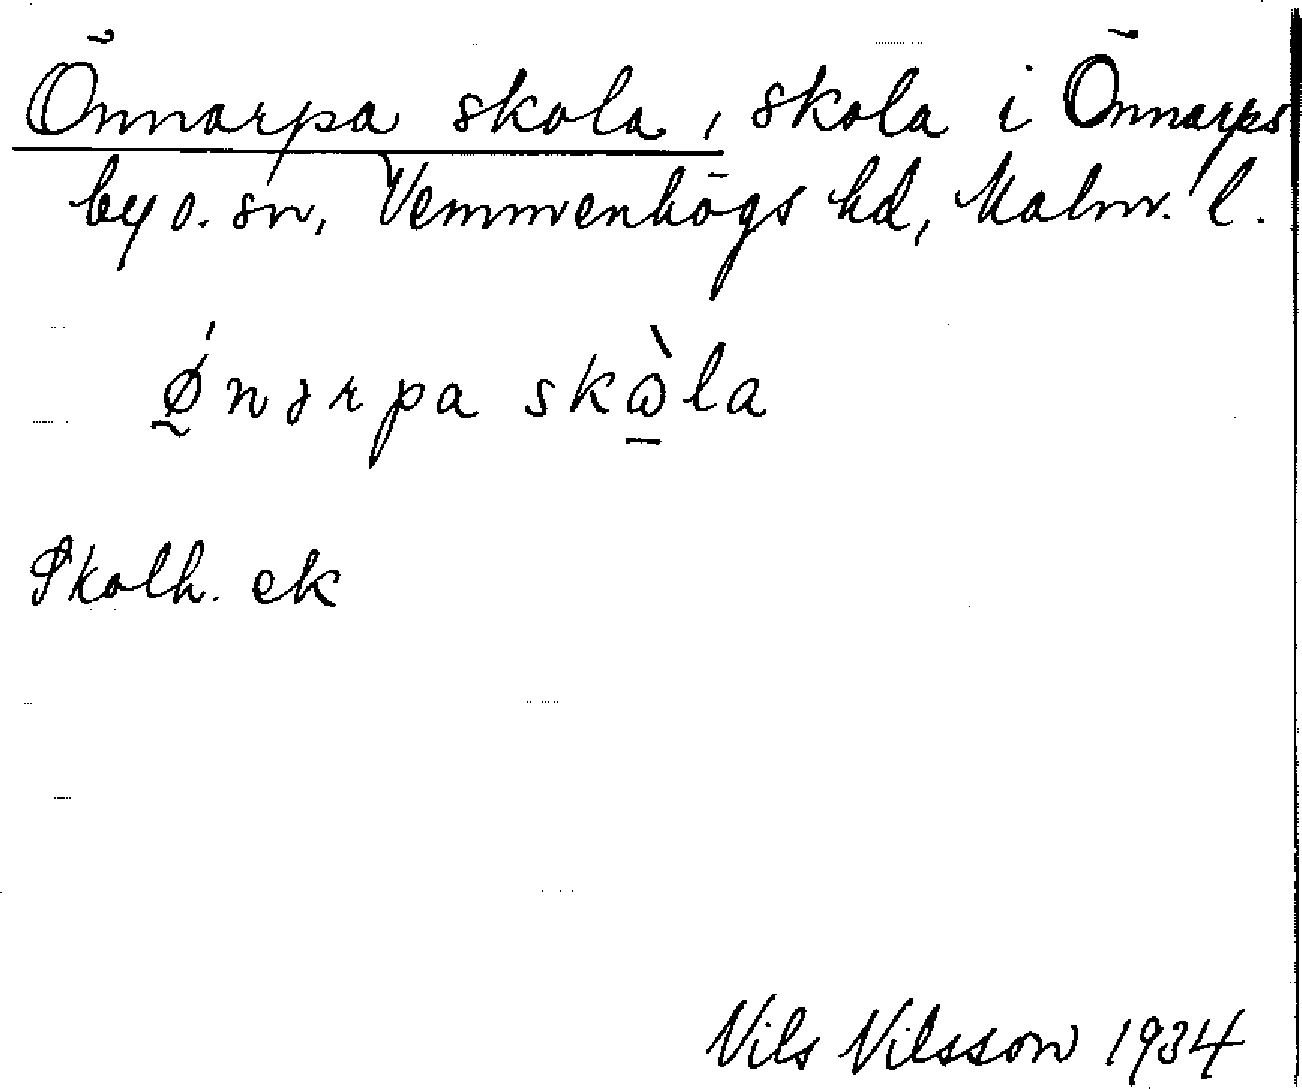 Önnarpa skola, skola i Önnarps
by o. sn, Vemmenhögs hd, Malm. l.
Ǿ̰nɘrpa skὼ̱la
Skolh. ek
Nils Nilsson 1934